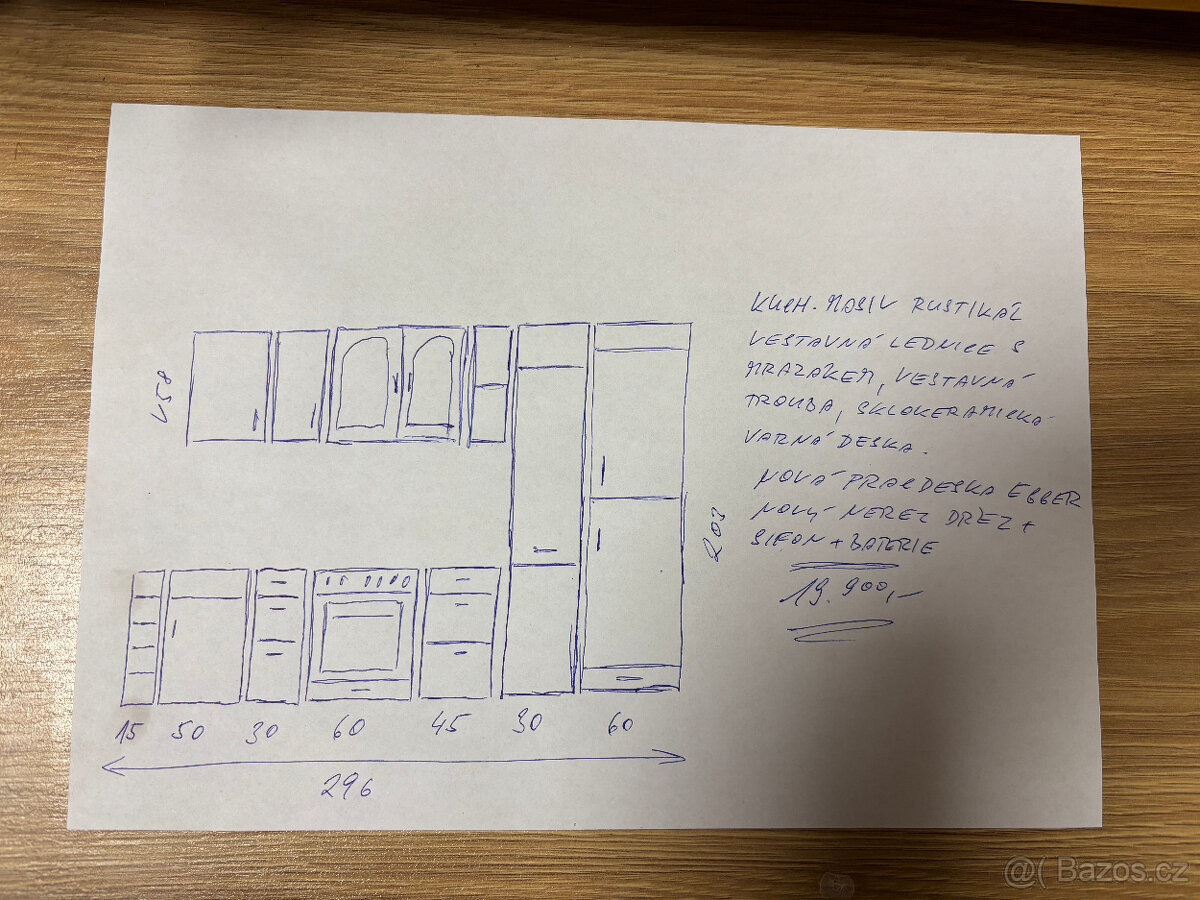 KUCH. MASIV RUSTIKÁL
VESTAVNÁ LEDNICE S
MRAZAKEM, VESTAVNÁ
TROUBA, SKLOKERAMICKÁ
VARNÁ DESKA.
NOVÁ PRAC DESKA EGGER
NOVÝ NEREZ DŘEZ +
SIFON + BATERIE
19.900,-
V58
203
15 50 30 60 45 30 60
296
@( Bazos.cz